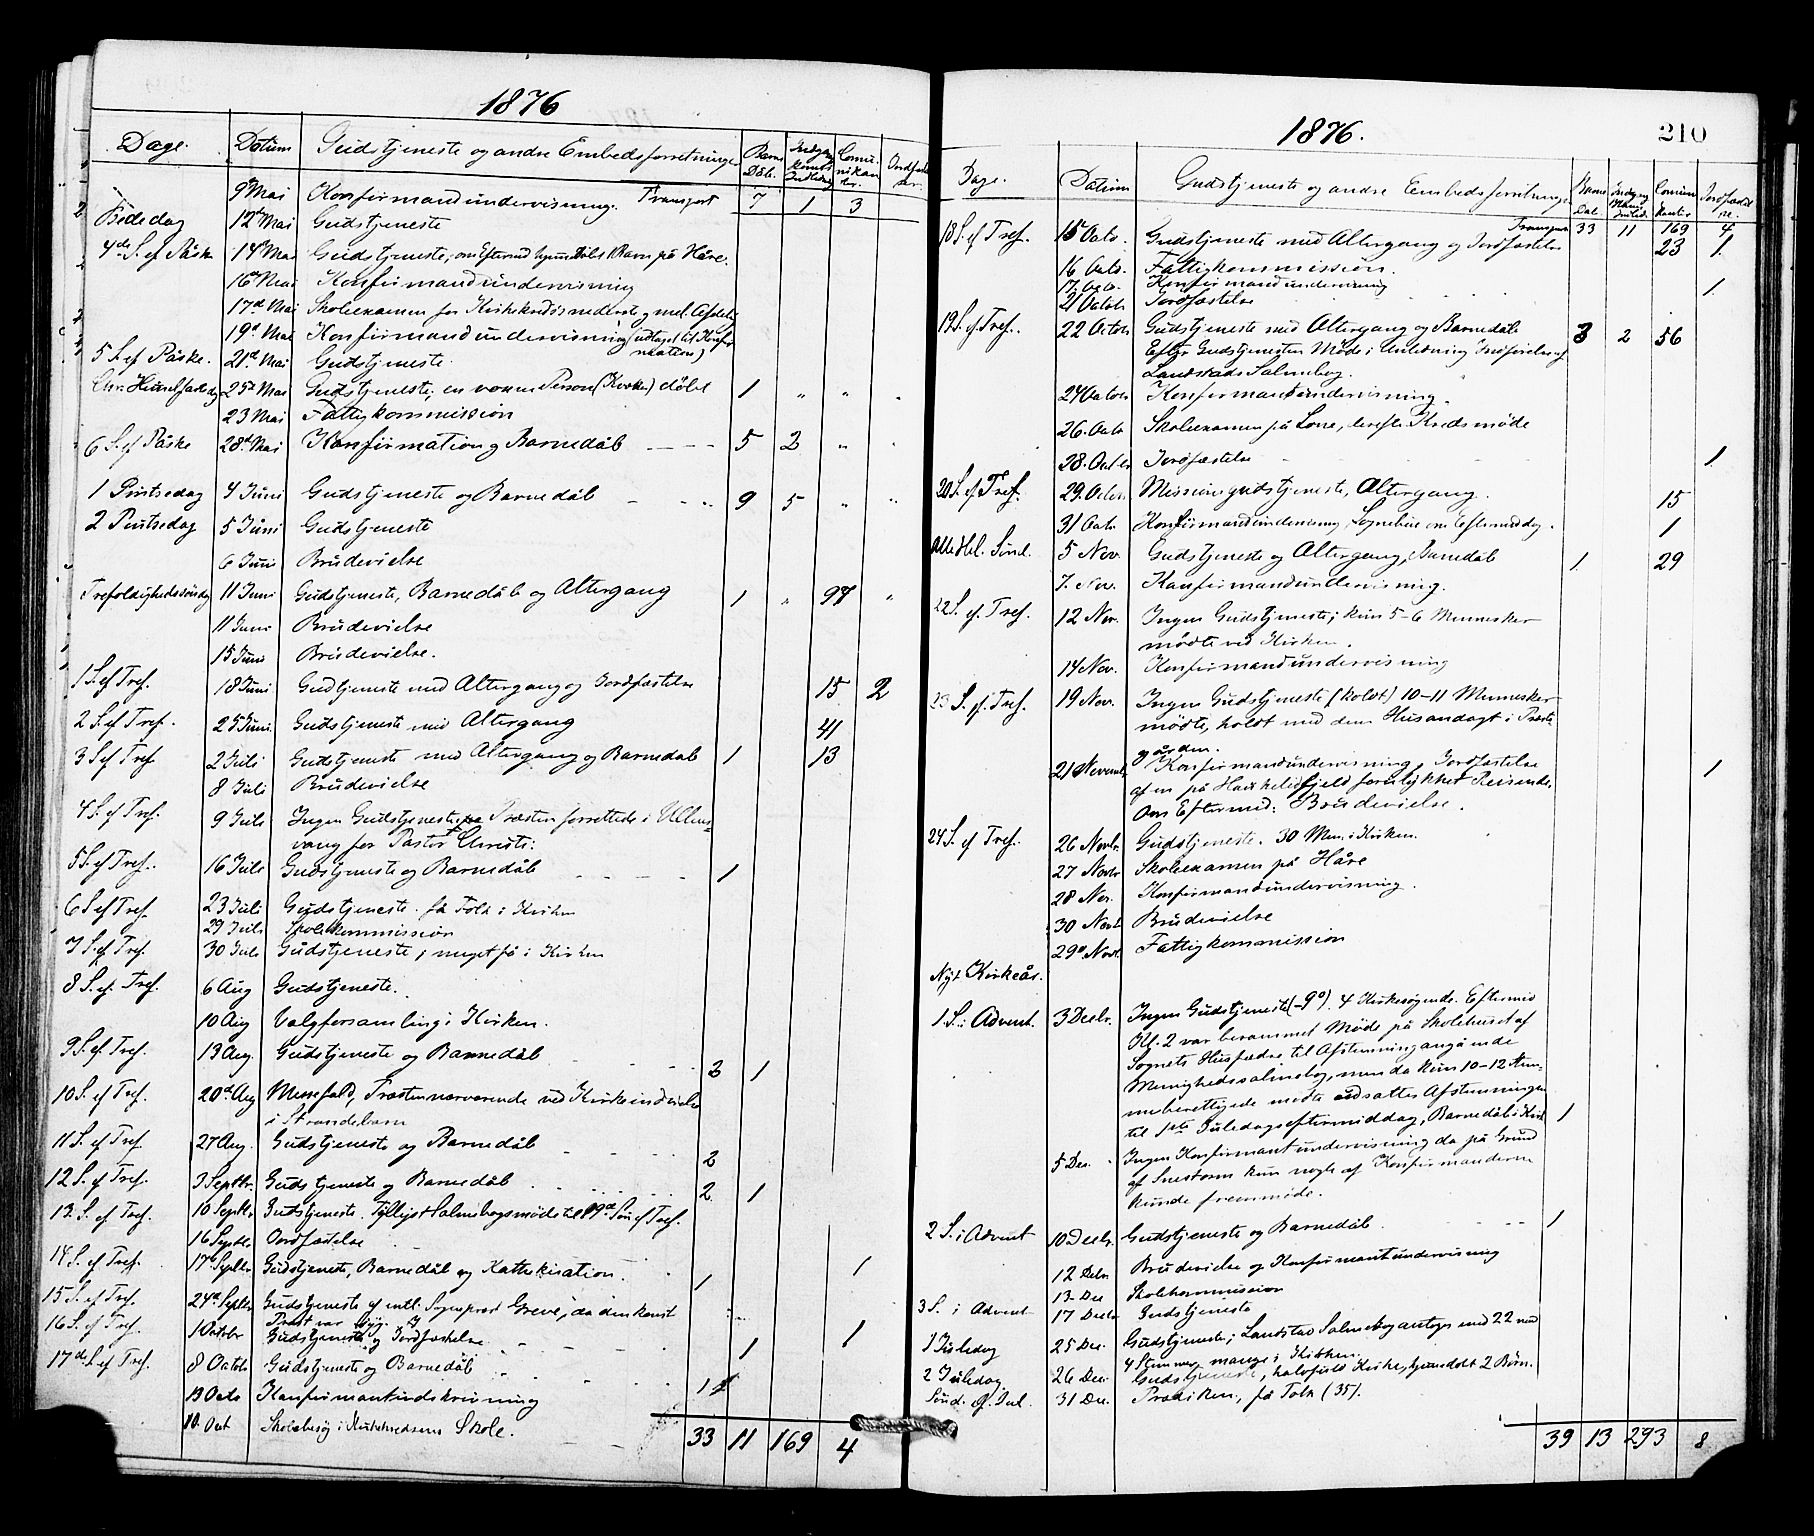 1876
Dage. Datum Gudstjeneste og andre Embedsforretninger Barne Dåb. Indgang Comunikanter.
9 Mai Konfirmandundervisning. Transport 7 1 3
Bededag 12 Mai Gudstjeneste
4de S. ef Påske 14 Mai Gudstjeneste, om Eftermd hjemmedåbt Barn på Håre.
16 Mai Konfirmandundervisning
17d Mai Skoleexamen for
19d Mai Konfirmandundervisning (udtaget til Konfirmation)
5 S. ef Påske. 21d Mai Gudstjeneste
Chr. Himmelfartsdag 25d Mai Gudstjeneste, en voxen Person (Kvæker) döbt 1 " " "
23 Mai Fattigkommission
6 S. ef Påske 28d Mai Konfirmation og Barnedåb 5 2 "
1 Pintsedag 4 Juni Gudstjeneste og Barnedåb 9 5 " "
2 Pintsedag 5 Juni Gudstjeneste
6 Juni Brudevielse
Trefoldighedssöndag 11 Juni Gudstjeneste, Barnedåb og Altergang 1 " 97 "
11 Juni Brudevielse
15 Juni Brudevielse.
1 S. ef Tref. 18 Juni Gudtjeneste med Altergang og Jordfæstelse 15 2
2 S. ef Tref. 25 Juni Gudstjeneste med Altergang 41
3 S ef Tref 2 Juli Gudstjeneste med Altergang og Barnedåb 1 13
8 Juli Brudevielse
4 S. ef Tref. 9 Juli Ingen Gudstjeneste, Præsten forrettede i Ullens-
vang for Pastor Christi:
5 S. ef Tref. 16 Juli Gudstjeneste og Barnedåb 1
6 S ef Tref. 23 Juli Gudstjeneste. få Folk i Kirken
29 Juli Skolekommission
7 S. ef Tref. 30 Juli Gudstjeneste, meget få i Kirken
8 S. ef. Tref. 6 Aug Gudstjeneste.
10 Aug Valgforsamling i Kirken.
9 S. ef Tref. 13 Aug. Gudstjeneste og Barnedåb 2 1
10 S. ef Tref. 20d Aug Messefald, Præsten nærværende ved Kirkeindvielse
i Strandebarm
11 S. ef Tref. 27 Aug. Gudstjeneste og Barnedåb 2
12 S. ef Tref. 3 Septbr. Gudstjeneste og Barnedåb 2 1
13. S. ef Tref. 10 Septbr. Gudstjeneste. Tyllyst Salmebogsmöde til 19d Sön ef Tref.
16 Septbr Jordfæstelse
14 S. ef Tref. 17d Septbr Gudstjeneste, Barnedåb og Kathekisation. 1 1
15 S. ef Tref. 24d Septbr Gudstjeneste af Sogneprest Greve, da den konst
Præst var syg.
16 S. ef Tref. 1 Octobr Gudstjeneste og Jordfæstelse 1 1
17d S. ef Tref. 8 Octobr Gudstjeneste og Barnedåb 1
13 Octo Konfirmantindskrivning
10. Oct Skolebesög i Kirkekredsens Skole.
33 11 169 4
1876.
210
Dage. Datum Gudstjeneste og andre Embedsforretninger Barne Dåb. Comuni kanter Jordfæstel se.
Transport 33 11 169 4
18 S. ef Tref. 15 Octo. Gudstjeneste med Altergang og Jordfæstelse 23 1.
16 Octo. Fattigkommission.
17. Octo. Konfirmandundervisning
21 Octob Jordfæstelse 1.
19. S. ef Tref. 22 Octob Gudstjeneste med Altergang og Barnedåb 3 2 56
Efter Gudstjenesten Möde i Anledning Indförelse af
Landstads Salmebog.
24 Octobr Konfirmantundervisning.
26. Octo Skoleexamen på Lone, derefter Kredsmöde
28. Octbr Jordfæstelse 1.
20 S. ef Tref. 29. Octobr Missionsgudstjeneste, Altergang. 15
31 Octo. Konfirmandundervisning, Sognebud om Eftermiddag. 1
Alle Hel. Sönd. 5 Nov. Gudstjeneste og Altergang, Barnedåb 1. 29
7. Nov. Konfirmandundervisning.
22 S. ef. Tref. 12 Nov. Ingen Gudstjeneste; kun 5-6 Mennesker
mödte ved Kirken.
14 Nov. Konfirmandundervisning
23 S. ef. Tref. 19 Nov. Ingen Gudstjeneste (koldt) 10-11 Mennesker
mödte, holdt med dem Husandagt i Præste
gården.
21 Novembr Konfirmandundervisning, Jordfæstelse 1
af en på Haukelidfjeld forulykket Reisende.
Om Eftermid: Brudevielse.
24 S. ef Tref. 26 Novbr. Gudstjeneste. 30 Men. i Kirken.
27 Novbr Skoleexamen på Håre
28 Nov. Konfirmandundervisning.
30 Novb Brudevielse
29d Novb. Fattigkommission
Nyt Kirkeår.
1. S. i Advent. 3 Decbr. Ingen Gudstjeneste (-9°). 4 Kirkesögende. Eftermid
Kl. 2 var berammet Möde på Skolehuset af
Sognets Husfædre til Afstemning angående
Menighedssalmebog, men da kun 10-12 Stem-
meberettigede mödte udsattes Afstemningen
til 1ste Juledagseftermiddag, Barnedåb i Kirk 1
5 Dec. Ingen Konfirmantundervisning da på Grund
af Snestorm kun nogle af Konfirmanderne
kunde fremmöde.
2 S. i Advent 10 Decbr. Gudstjeneste og Barnedåb 1
12 Decbr Brudevielse og Konfirmantundervisning
13. Dec Skolekommission
3 S. i Advent 17 Decbr Gudstjeneste
1 Juledag 25 Dec. Gudstjeneste; Landstad Salmebog antoges med 22 mod
4 Stemmer mange i Kirken.
2 Juledag 26 Dec. Gudstjeneste, halvfuld Kirke, hjemdöbt 2 Börn.
Sönd. ef. Jul. 31 Dec. Prædiken, få Folk (35).
39 13 293 8